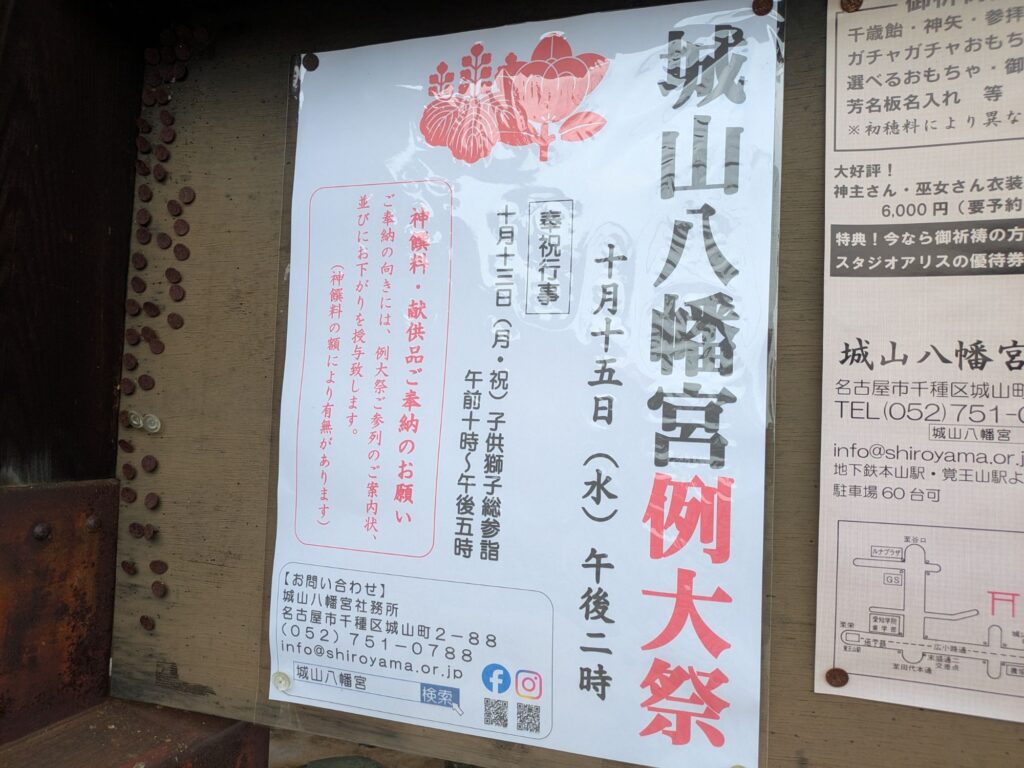 城山八幡宮例大祭
十月十五日（水）午後二時
奉祝行事
十月十三日（月・祝）子供獅子総参詣
午前十時～午後五時
神饌料・献供品ご奉納のお願い
ご奉納の向きには、例大祭ご参列のご案内状、
並びにお下がりを授与致します。
（神饌料の額により有無があります）
【お問い合わせ】
城山八幡宮社務所
名古屋市千種区城山町２－８８
(０５２) ７５１－０７８８
info@shiroyama.or.jp
城山八幡宮
検索
千歳飴・神矢・参拝
ガチャガチャおもち
選べるおもちゃ・御
芳名板名入れ 等
※初穂料により異な
大好評！
神主さん・巫女さん衣装
6,000円（要予約
特典！今なら御祈祷の方
スタジオアリスの優待券
城山八幡宮
名古屋市千種区城山町
TEL(052)751-0
城山八幡宮
info@shiroyama.or.j
地下鉄本山駅・覚王山駅よ
駐車場60台可
至谷口
ルナプラザ
GS
愛知学院
至栄
広小路通
末盛通二
交差点
至田代本通